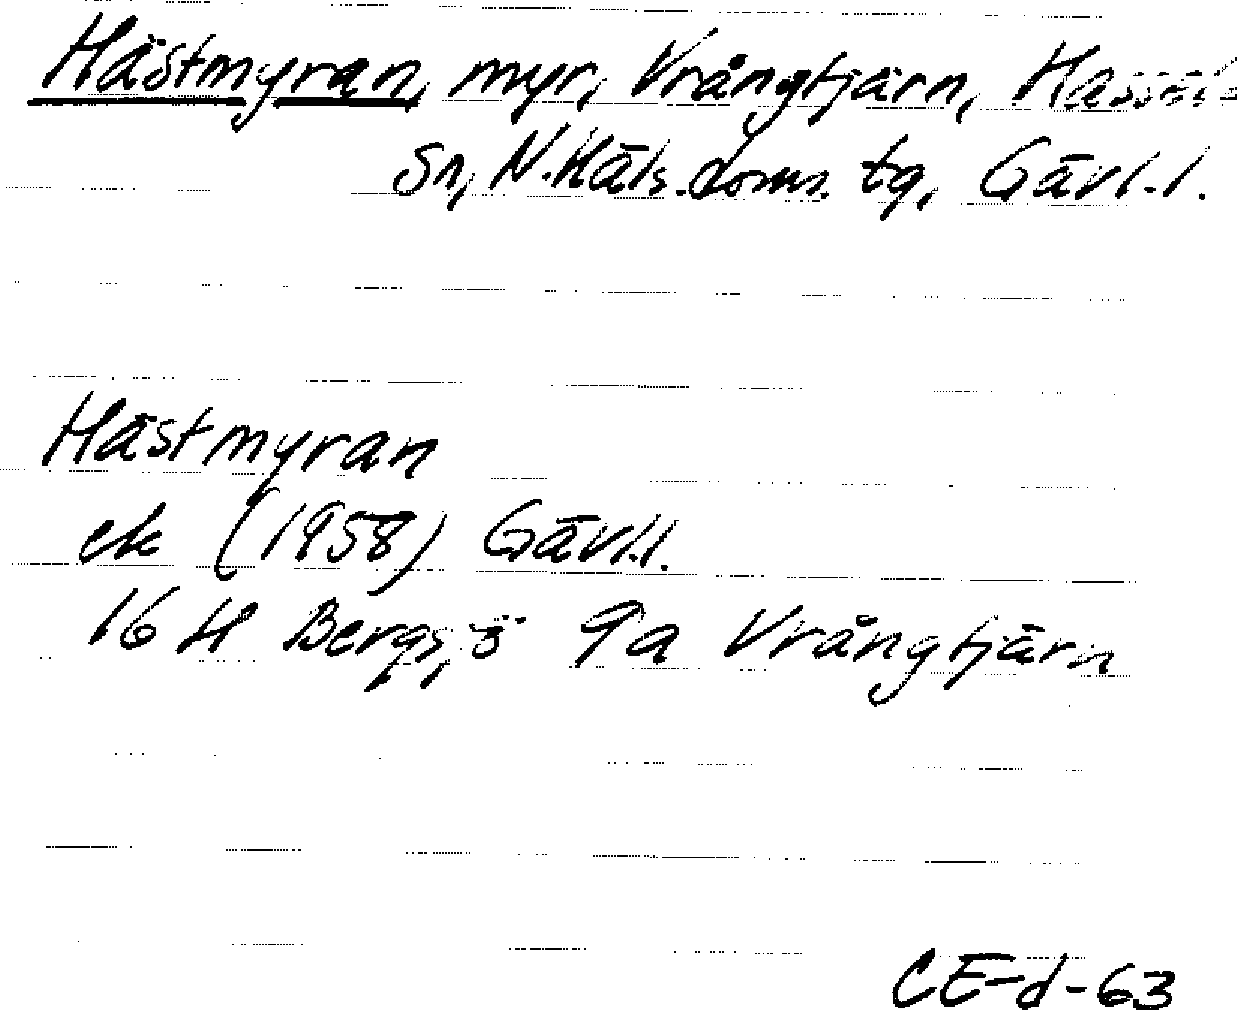 Hästmyran, myr, Vrångtjärn, Hassela
sn, N.Häls. doms. tg, Gävl.l.
Hästmyran
ek (1958) Gävl.l.
16 H Bergsjö 9a Vrångtjärn
CE-d-63